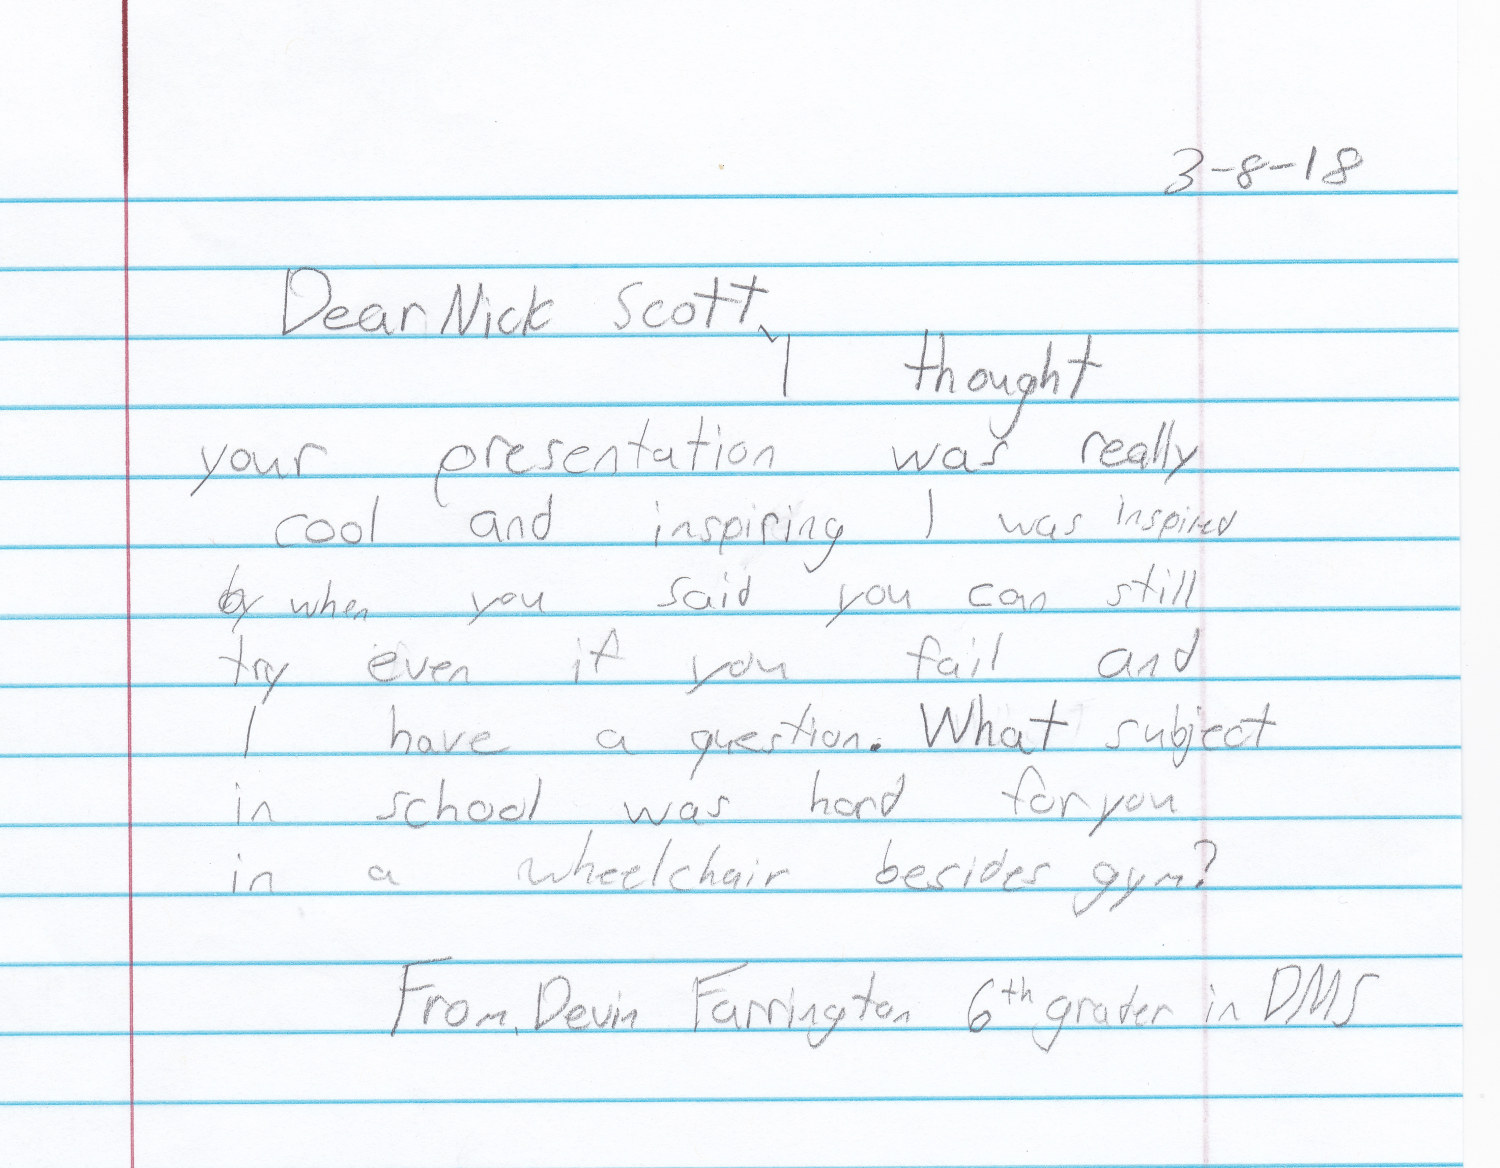 3-8-18
Dear Nick Scott,
I thought
your presentation was really
cool and inspiring I was inspired
by when you said you can still
try even if you fail and
I have a question. What subject
in school was hard for you
in a wheelchair besides gym?
From, Devin Farrington 6th grader in DMS